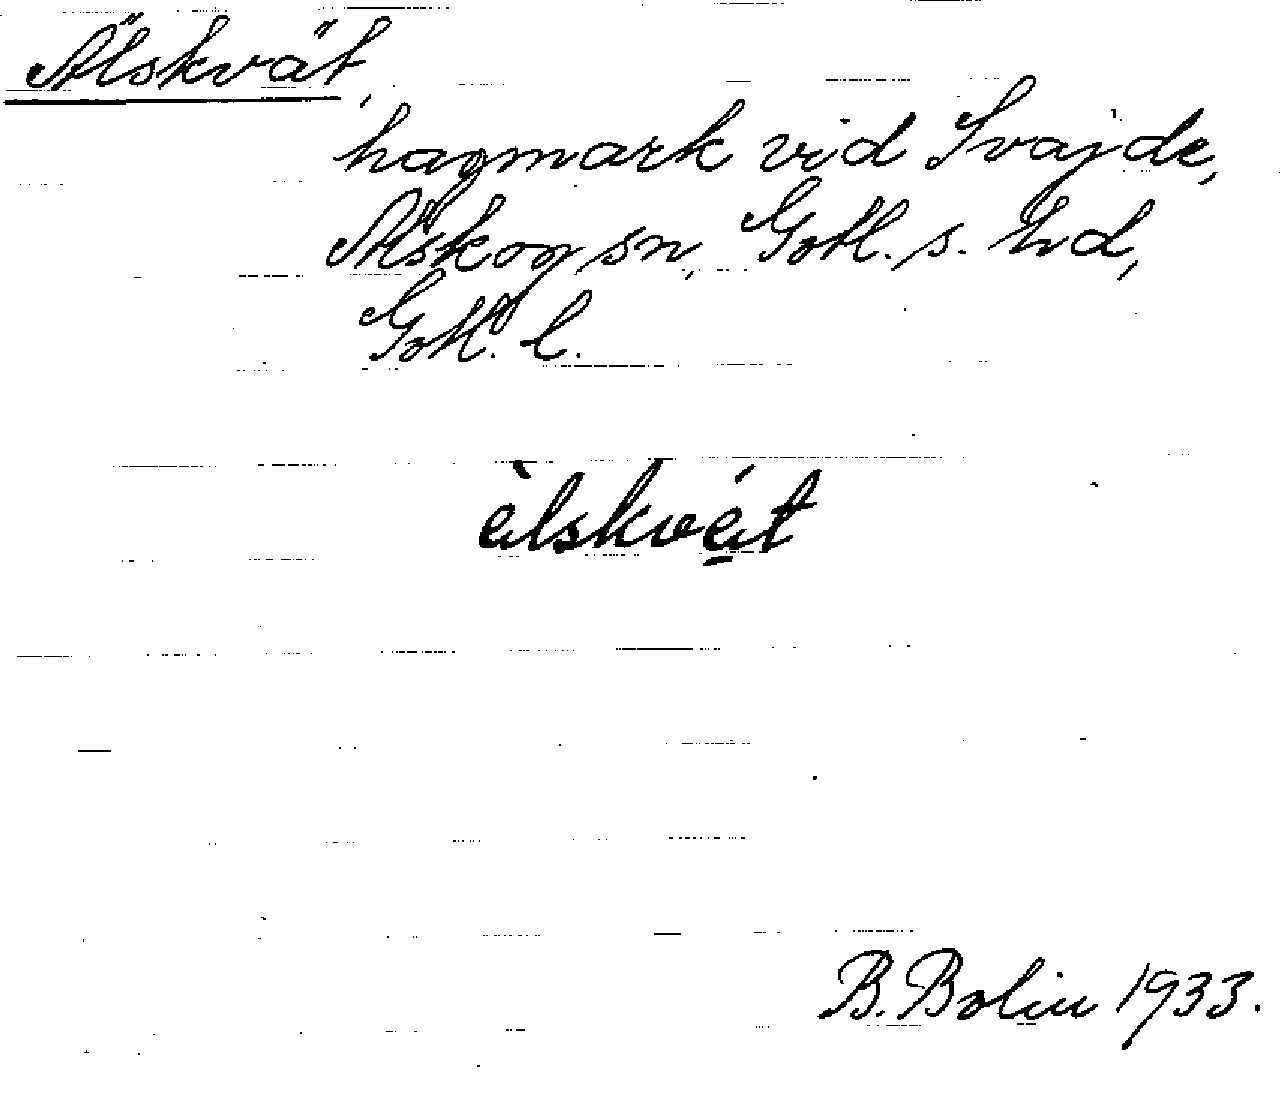 Älskvät,
hagmark vid Svajde,
Alskog sn, Gotl. s. hd,
Gotl. l.
älskvät
B. Bolin 1933.